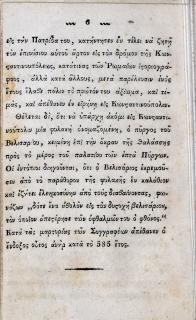 6
εἰς τὴν Πατρίδα του, κατήντησεν ἐν τέλει νὰ ζητῇ
τὸν ἐπιούσιον αὐτοῦ ἄρτον εἰς τὸν δρόμον τῆς Κων-
σταντινουπόλεως, κατά τινας τῶν Ῥωμαίων ἱστοριογρά-
φους, ἀλλὰ κατὰ ἄλλους, μετὰ παρέλευσιν ἑνὸς
ἔτους ἔλαβε πάλιν τὸ πρῶτόν του ἀξίωμα, καὶ τι-
μάς, καὶ ἀπέθανεν ἐν εἰρήνῃ εἰς Κωνσταντινούπολιν.
Θέλεται δέ, ὅτι νὰ ὑπάρχῃ ἀκόμι εἰς Κωνσταντι-
νούπολιν μία φυλακὴ ὀνομαζομένη, ὁ πύργος τοῦ
Βελισαρίου, κειμένη ἐπὶ τὴν ἄκραν τῆς Θαλάσσης
πρὸς τὸ μέρος τοῦ παλατίου τῶν ἑπτὰ Πύργων.
Οἱ ἐντόπιοι διηγοῦνται, ὅτι ὁ Βελισάριος ἐκρεμοῦ-
σεν ἀπὸ τὸ παράθυρον τῆς φυλακῆς ἓν καλάθιον
καὶ ἐζήτει ἐλεημοσύνην ἀπὸ τοὺς διαβαίνοντας, φω-
νάζων „δότε ἕνα ὀβολὸν εἰς τὸν δυστυχῆ βελισάριον,
τὸν ὁποῖον ἀπεστέρησε τῶν ὀφθαλμῶν του ὁ φθόνος."
Κατὰ τὰς μαρτυρίας τῶν Συγγραφέων ἀπέθανεν ὁ
ἔνδοξος οὗτος ἀνὴρ κατὰ τὸ 585 ἔτος.